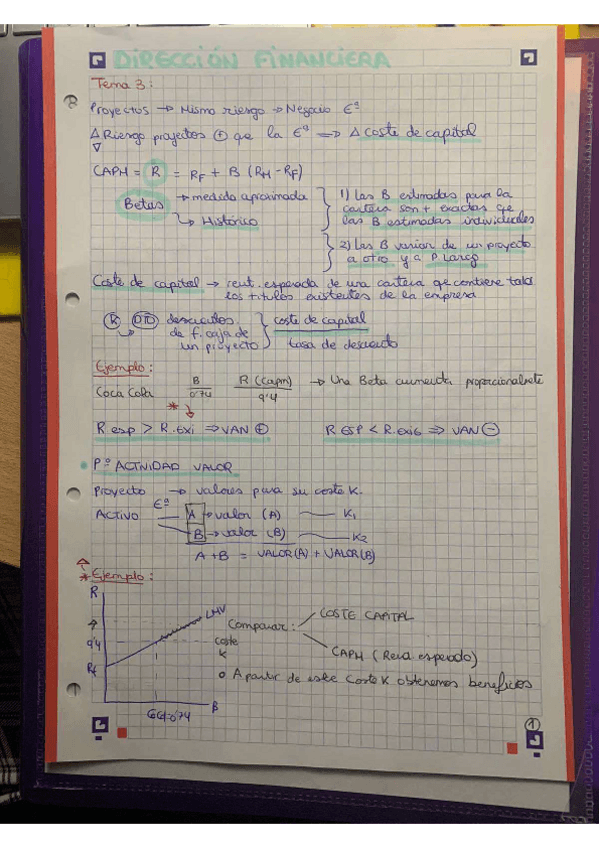 DIRECCIÓN FINANCIERA
Tema 3:
Proyectos → Mismo riesgo → Negocio Eª
Δ Riesgo proyectos ⊕ que la Eª ⇒ Δ coste de capital
∇
CAPM = R = RF + B (RM - RF)
Betas → medida aproximada
↳ Histórico
1) Las B estimadas para la
cartera son + exactas que
las B estimadas individuales
2) Las B varian de un proyecto
a otro y a P largo
Coste de capital → rent. esperada de una cartera qe contiene todos
los titulos existentes de la empresa
K descuentos
de f. caja de
un proyecto
coste de capital
tasa de descuento
Ejemplo:
B R (Capm) → Una Beta aumenta proporcionalmente
Coca Cola 0'74 9'4
*
R esp > R. exi ⇒ VAN ⊕ R ESP < R. EXIG ⇒ VAN ⊖
Pº ACTIVIDAD VALOR
Proyecto → valores para su coste K.
Eª
ACTIVO A → valor (A) K1
B → valor (B) K2
A + B = VALOR (A) + VALOR (B)
* Ejemplo:
R
LMV
9'4
Rf
coste
K
B
Comparar:
COSTE CAPITAL
CAPM (Rexa esperado)
o A partir de este Coste K obtenemos beneficios
1